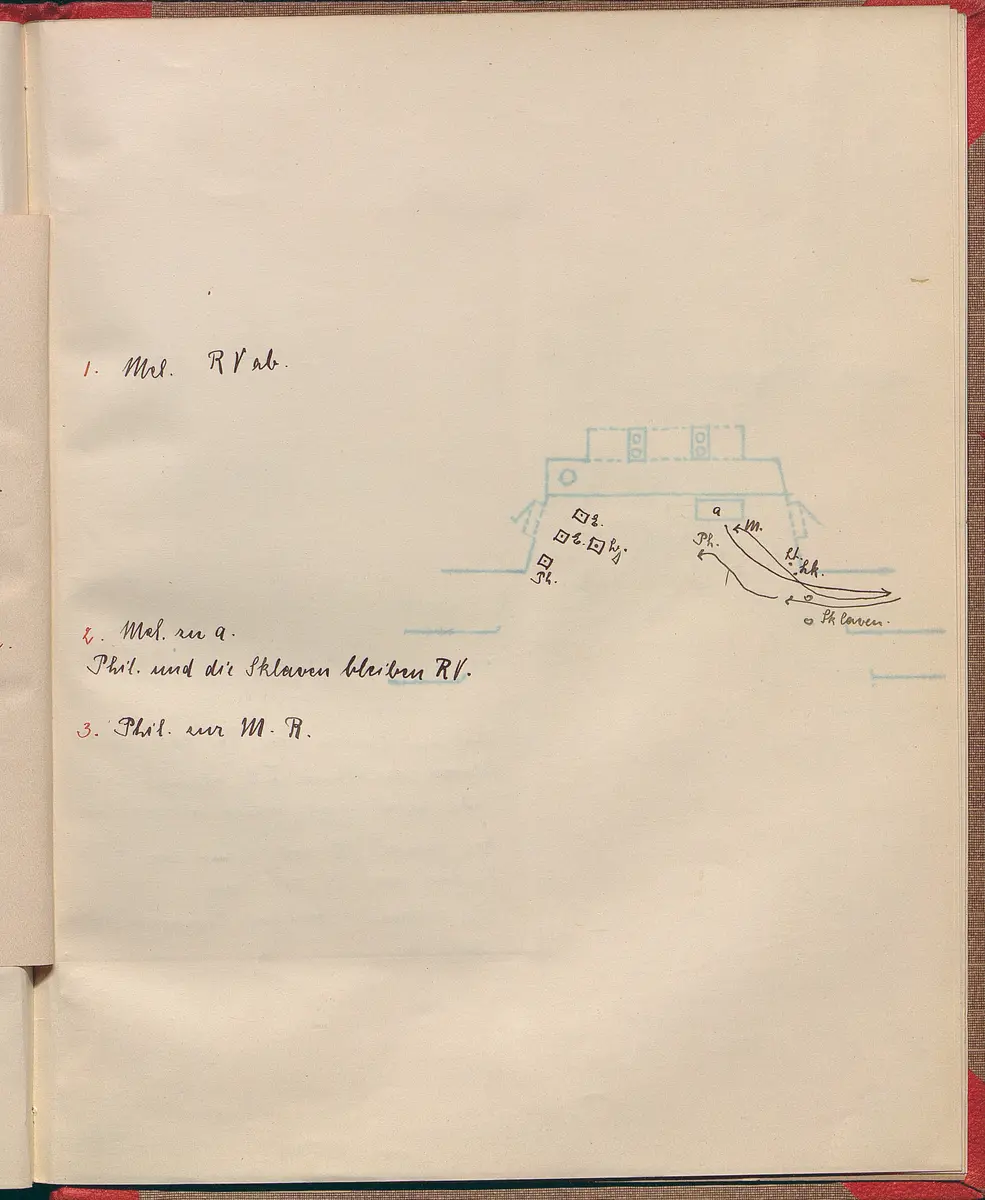 1. Mel. RV ab.
a
M.
Ph.
Ph.
Sklaven.
2. Mel. zu a.
Phil. und die Sklaven bleiben RV.
3. Phil. zur M. R.